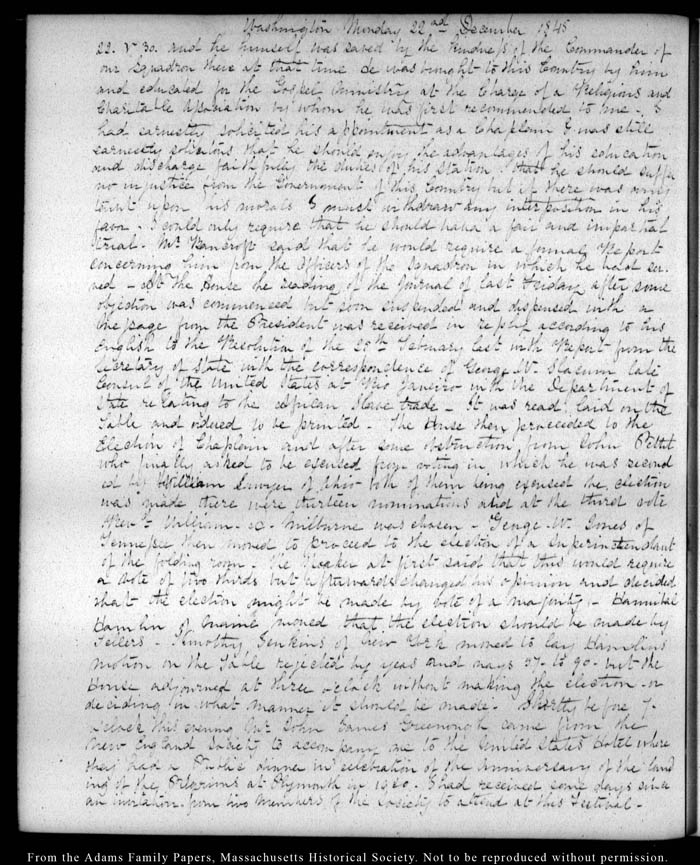 Washington Monday 22nd December 1845
22. V 30. and he himself was saved by the kindness of the Commander of
our Squadron there at that time He was brought to this Country by him
and educated for the Gospel Ministry at the Charge of a Religious and
Charitable Association by whom he was first recommended to me - I
had earnestly solicited his appointment as a Chaplain & was still
earnestly solicitous that he should enjoy the advantages of his education
and discharge faithfully the duties of his station, that he should suffer
no injustice from the Government of this Country but if there was any
taint upon his morals I must withdraw any interposition in his
favor - I could only require that he should have a fair and impartial
trial - Mr Bancroft said that he would require a formal Report
concerning him from the Officers of the Squadron in which he had ser-
ved - At the House the reading of the Journal of last Friday after some
objection was commenced but soon suspended and dispensed with a
Message from the President was received in reply according to his
English to the Resolution of the 25th February last with Report from the
Secretary of State with the correspondence of George W. Slacum late
Consul of the United States at Rio Janeiro with the Department of
State relating to the African Slave trade - It was read, laid on the
Table and ordered to be printed - The House then proceeded to the
Election of Chaplain and after some obstruction from John Pettit
who finally asked to be excused from voting in which he was second
ed by William Sawyer of Ohio both of them being excused the election
was made there were thirteen nominations and at the third vote
Revt William Milburne was chosen - George W. Jones of
Tennessee then moved to proceed to the election of a Superintendant
of the folding room - The Speaker at first said that this would require
a vote of two thirds but afterwards changed his opinion and decided
that the election might be made by vote of a majority - Hannibal
Hamlin of Maine moved that the election should be made by
Tellers - Timothy Jenkins of New York moved to lay Hamlins
motion on the Table rejected by yeas and nays 57 - to 90 - but the
House adjourned at three o'clock without making the election or
deciding in what manner it should be made - Shortly before 7
O'clock this evening Mr John James Greenough came from the
New England Society to accompany me to the United States Hotel where
they had a Public dinner in celebration of the Anniversary of the land
ing of the Pilgrims at Plymouth in 1620 - I had received some days since
an invitation from two members of the Society to attend at this Festival -
From the Adams Family Papers, Massachusetts Historical Society. Not to be reproduced without permission.